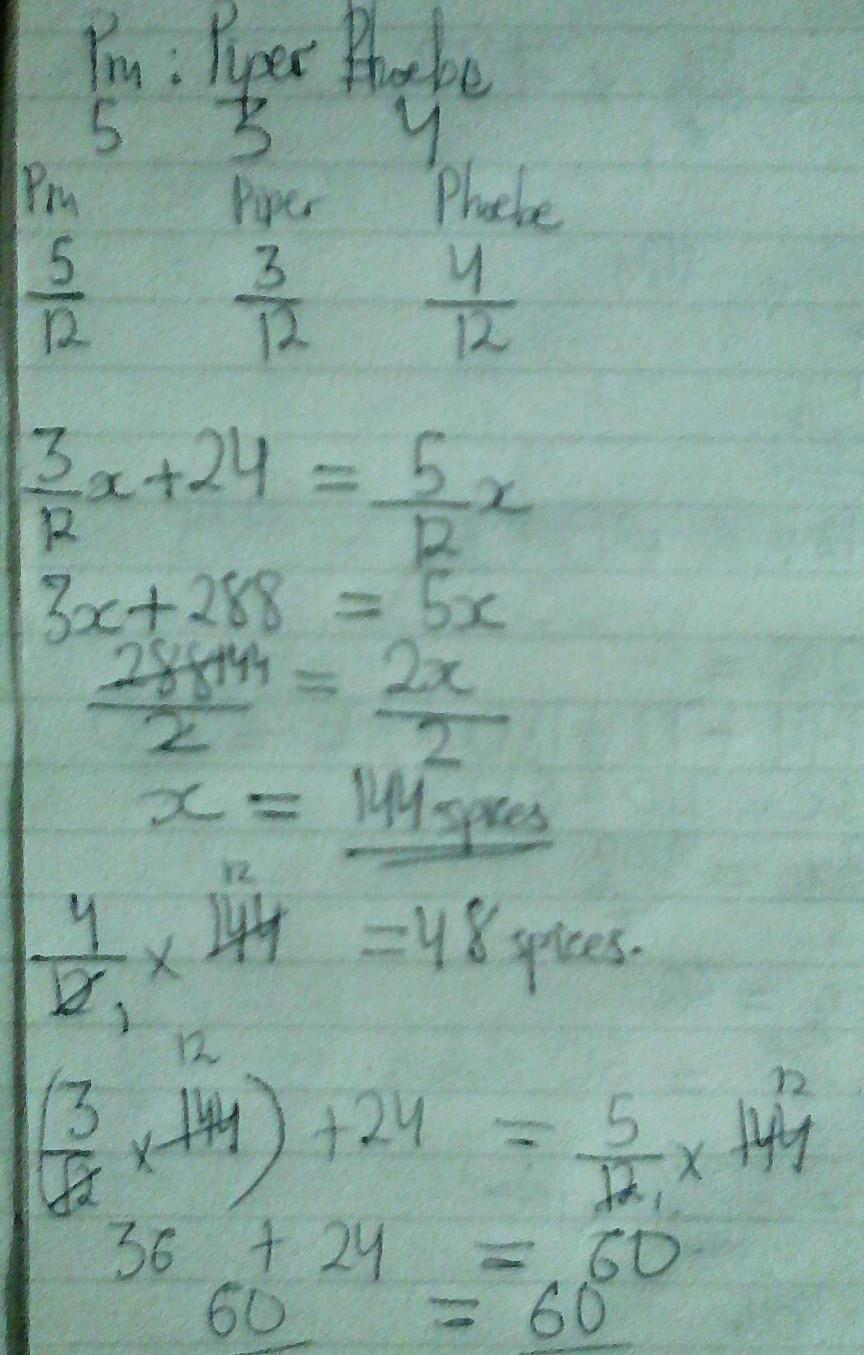 Pm : Piper Phoebe
5 3 4
Pm Piper Phoebe
5/12 3/12 4/12
3/12 x + 24 = 5/12 x
3x + 288 = 5x
288 144/2 = 2x/2
x = 144 spices
4/12 1 × 144 12 = 48 spices.
(3/12 × 144 12) + 24 = 5/12 1 × 144 12
36 + 24 = 60
60 = 60